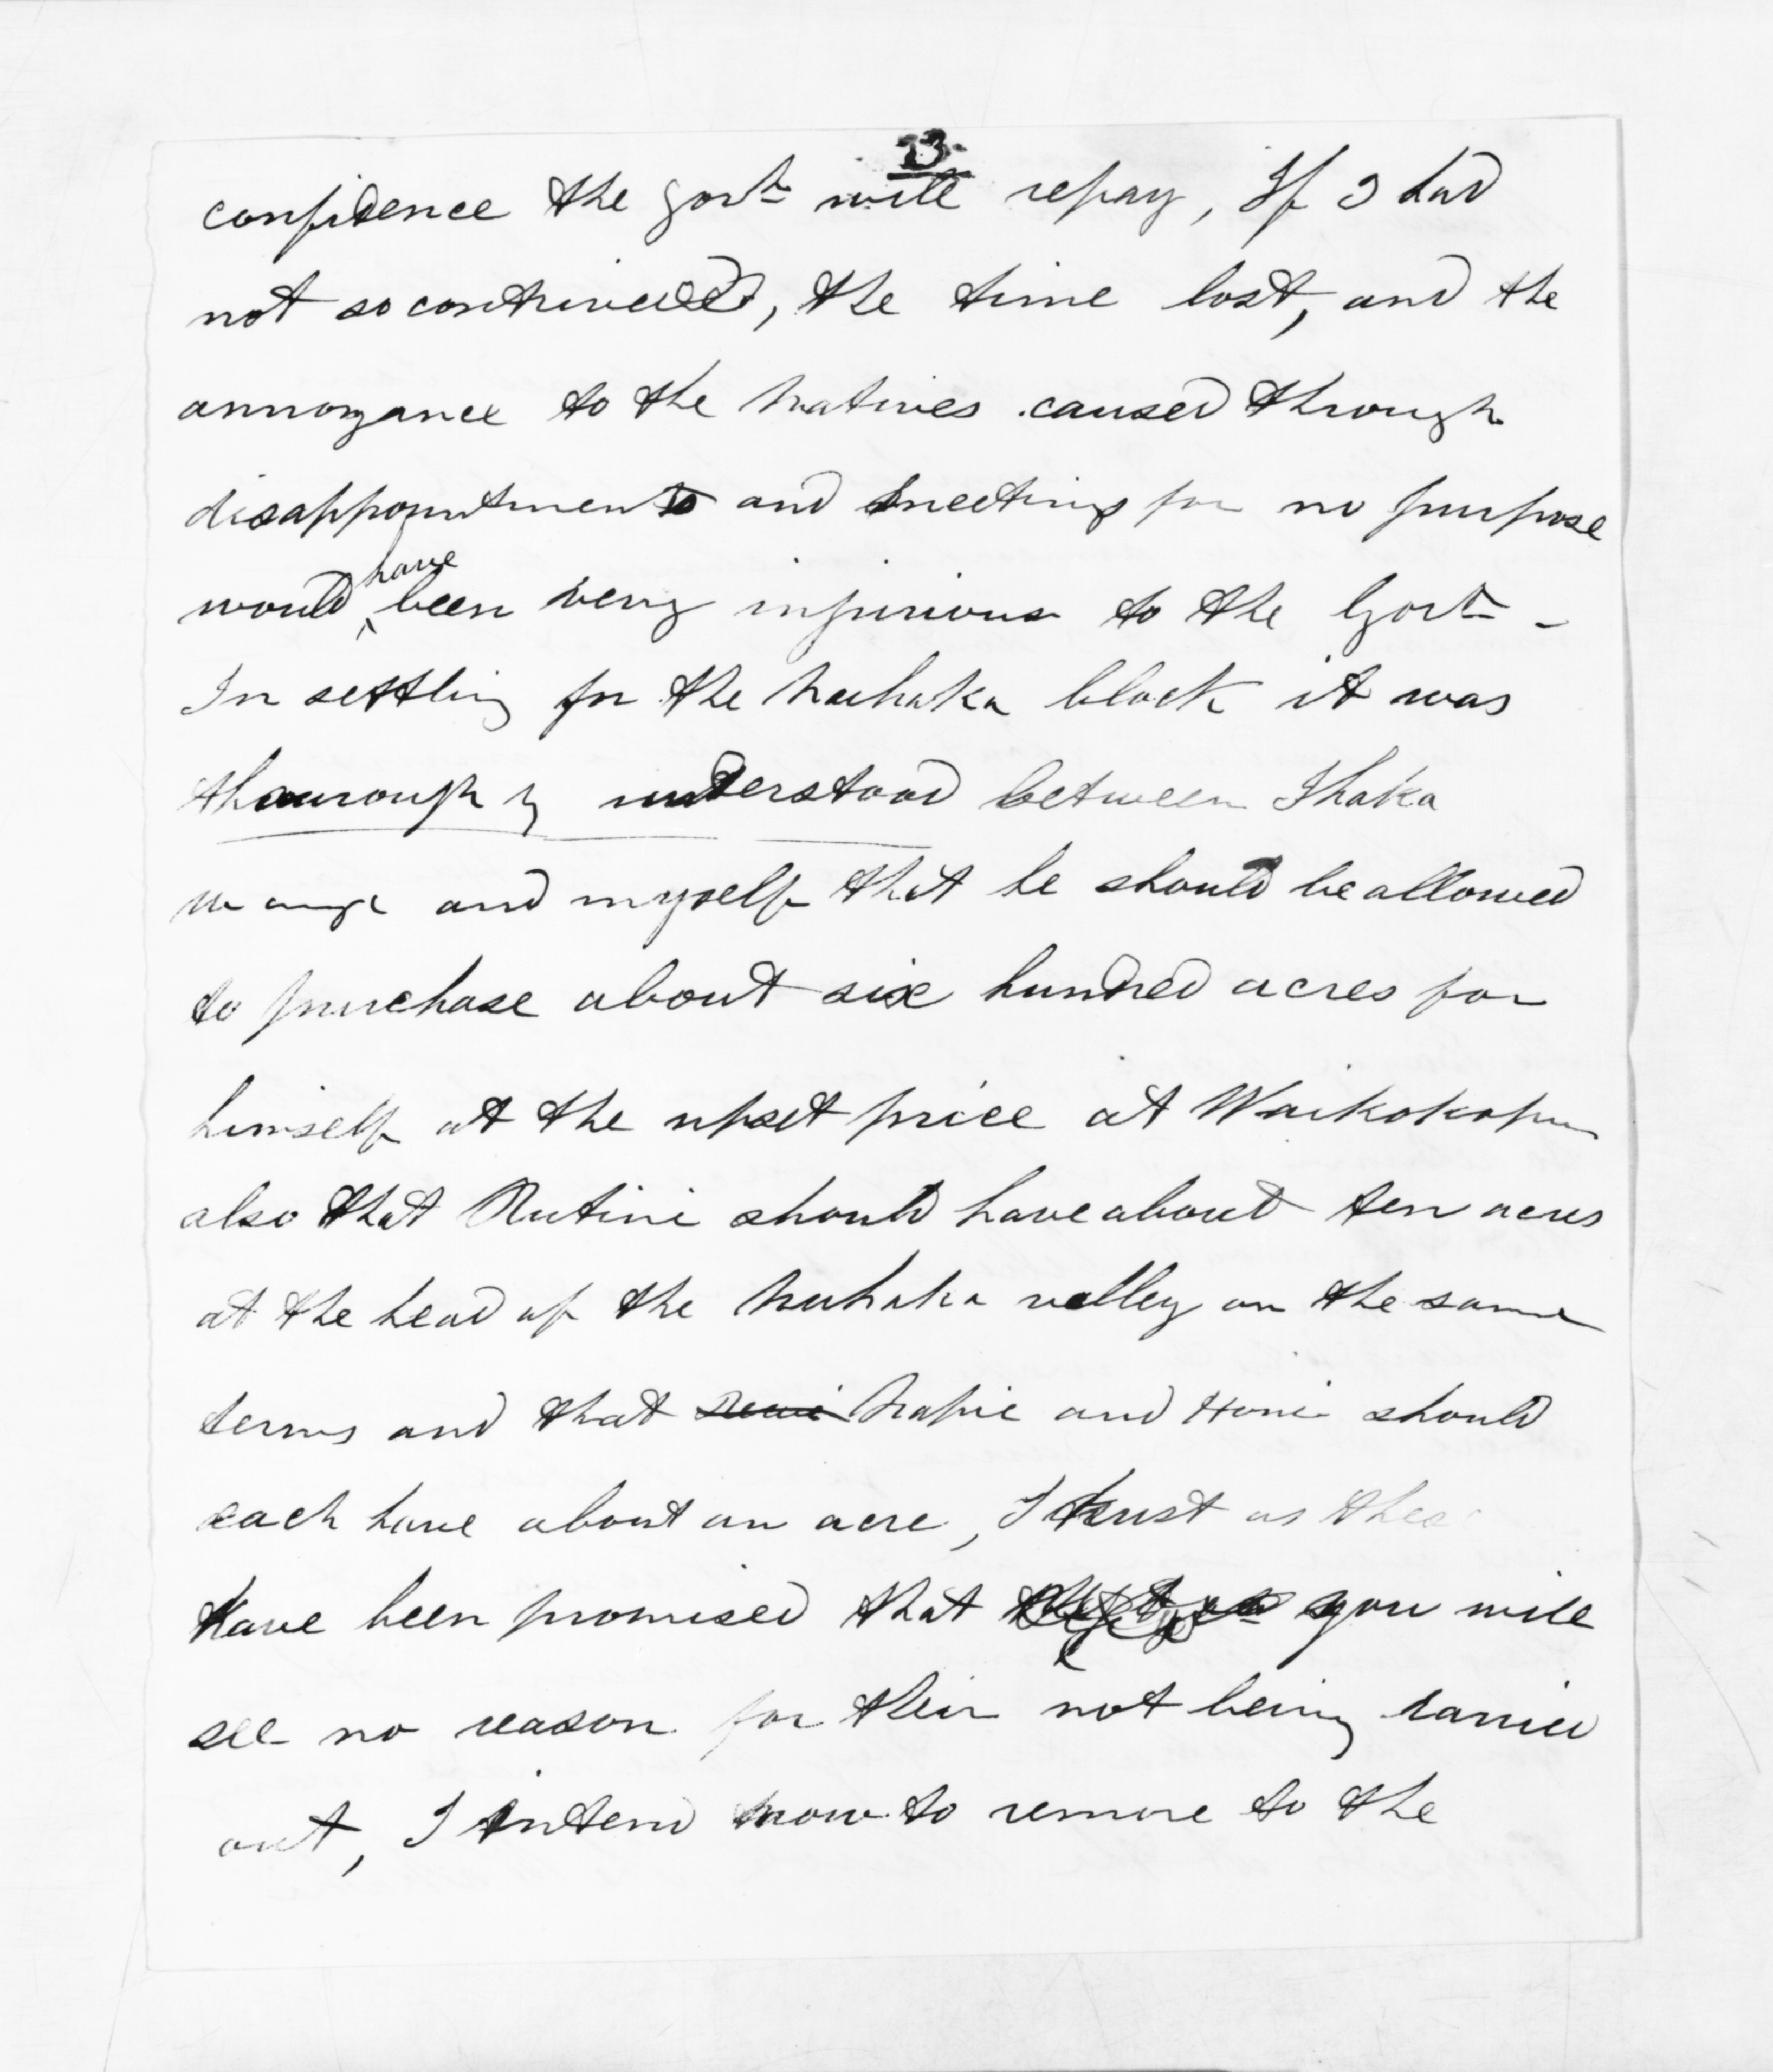 13.
confidence the Govt. will repay, If I had
not so contrived, the time lost, and the
annoyance to the natives caused through
disappointments and meetings for no purpose
would have been very injurious to the Govt. -
In settling for the Nuhaka block it was
thourough y understood between Ihaka
and myself that he should be allowed
to purchase about six hundred acres for
himself at the upset price at Waikokopu
also that Rutini should have about ten acres
at the head of the Nuhaka valley on the same
terms and that Napie and Honi should
each have about an acre, I trust as these
Have been promised that you will
see no reason for their not being carried
out, I intend now to remove to the